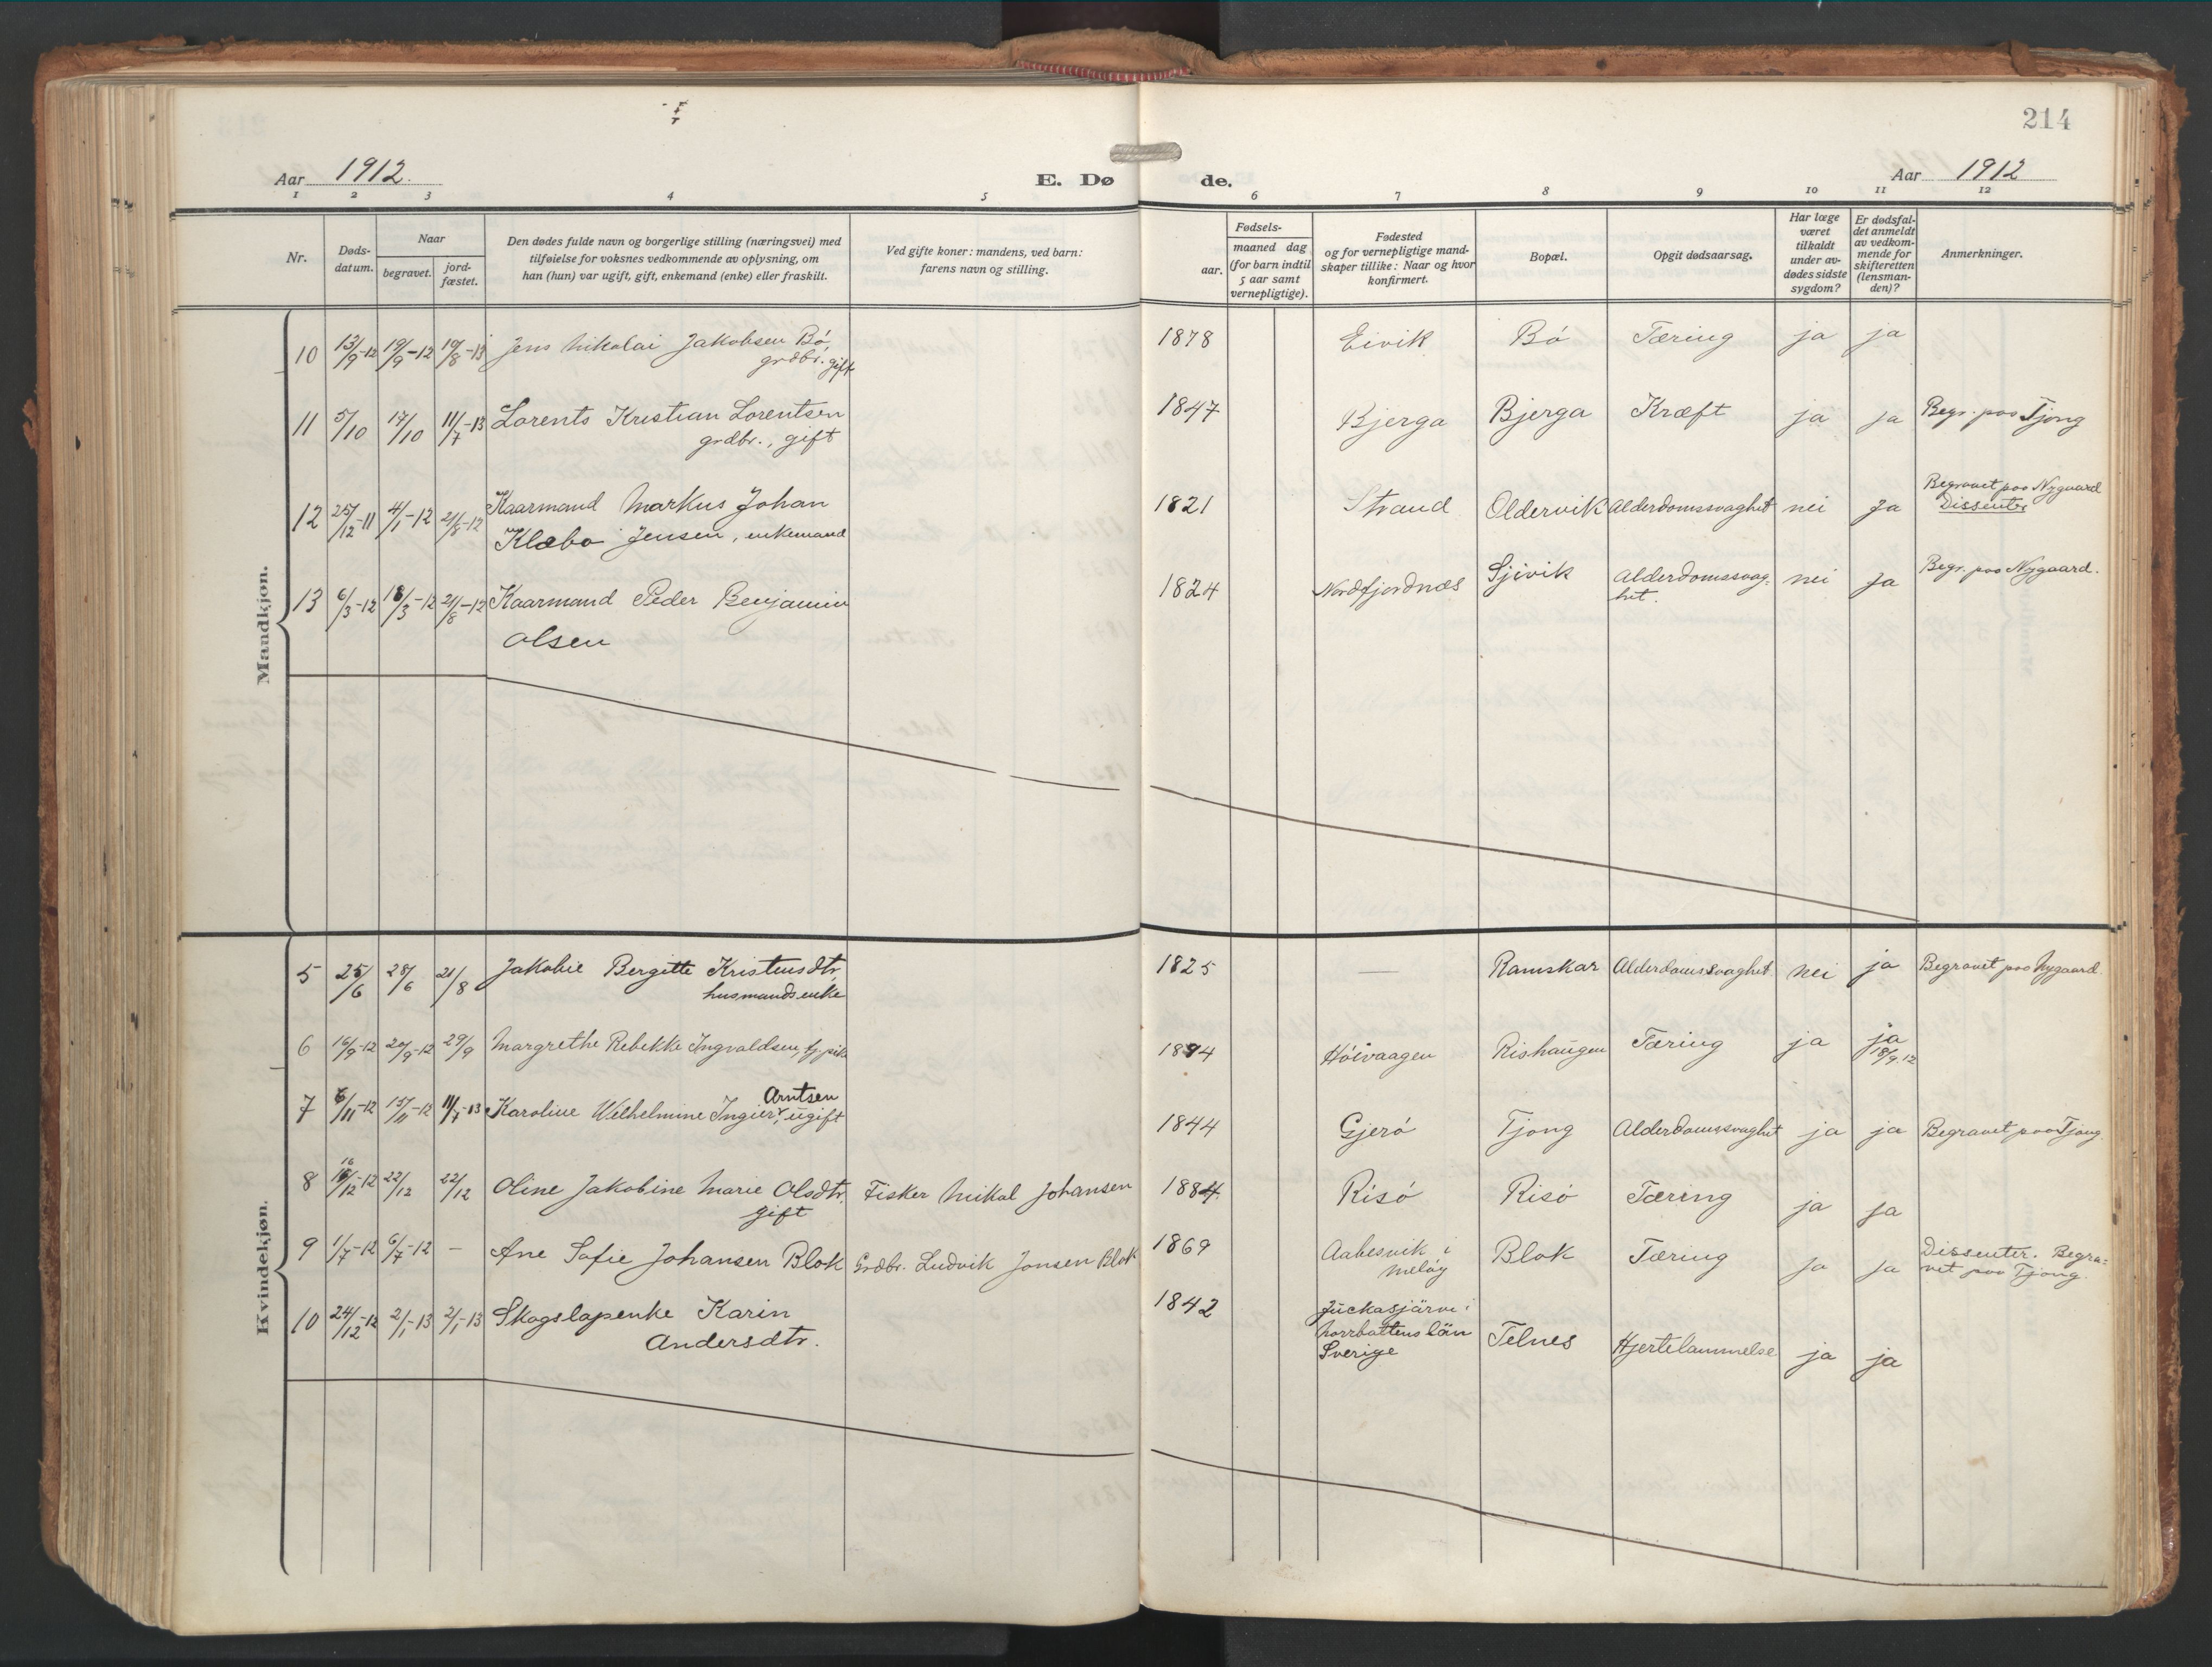 214
Aar 1912. E. Dø de. Aar 1912
1 2 3 4 5 6 7 8 9 10 11 12
Nr.
Døds-
datum.
Naar
begravet.
jord-
fæstet.
Den dødes fulde navn og borgerlige stilling (næringsvei) med
tilføielse for voksnes vedkommende av oplysning, om
han (hun) var ugift, gift, enkemand (enke) eller fraskilt.
Ved gifte koner: mandens, ved barn:
farens navn og stilling.
Fødsels-
aar.
maaned dag
(for barn indtil
5 aar samt
vernepligtige).
Fødested
og for vernepligtige mand-
skaper tillike: Naar og hvor
konfirmert.
Bopæl.
Opgit dødsaarsag.
Har læge
været
tilkaldt
under av-
dødes sidste
sygdom?
Er dødsfal-
det anmeldt
av vedkom-
mende for
skifteretten
(lensman-
den)?
Anmerkninger.
Mandkjøn.
10 13/9-12 19/9-12 19/8-13 Jens Nikolai Jakobsen Bø, 1878 Eivik Bø Tæring ja ja
grdbr. gift
11 5/10 17/10 11/7-13 Lorents Kristian Lorentsen 1847 Bjerga Bjerga Kræft ja ja Begr. paa Tjong
grdbr., gift
12 25/12-11 4/1-12 21/8-12 Kaarmand Markus Johan 1821 Strand Oldervik Alderdomssvaghet nei Ja Begravet paa Nygaard
Klæbo Jensen, enkemand Dissenter
13 6/3-12 18/3-12 21/8-12 Kaarmand Peder Benjamin 1824 Nordfjordnæs Sjivik Alderdomssvag- nei Ja Begr. paa Nygaard.
Olsen het.
Kvindekjøn.
5 25/6 28/6 21/8 Jakobie Bergitte Kristensdtr, 1825 — Ramskar Alderdomssvaghet nei ja Begravet paa Nygaard
husmandsenke
6 16/9-12 20/9-12 29/9 Margrethe Rebekke Ingvaldsen, 1894 Høivaagen Rishaugen Tæring ja ja
18/9.12
Arntsen
7 6/11-12 15/11-12 11/7-13 Karoline Wilhelmine Ingier, ugift 1844 Gjerø Tjong Alderdomssvaghet ja ja Begravet paa Tjong
16
8 16/12-12 22/12 22/12 Oline Jakobine Marie Olsdtr. Fisker Mikal Johansen 1884 Risø Risø Tæring ja ja
gift
9 1/7-12 6/7-12 — Ane Sofie Johansen Blok Grdbr. Ludvik Jonsen Blok 1869 Aabesvik i Blok Tæring ja ja Dissenter. Begra-
Meløy vet paa Tjong.
10 24/12-12 2/1-13 2/1-13 Skogslapenke Karin 1842 Juckasjärvi i Telnes Hjertelammelse ja ja
Andersdtr. Norrbottens län
Sverige